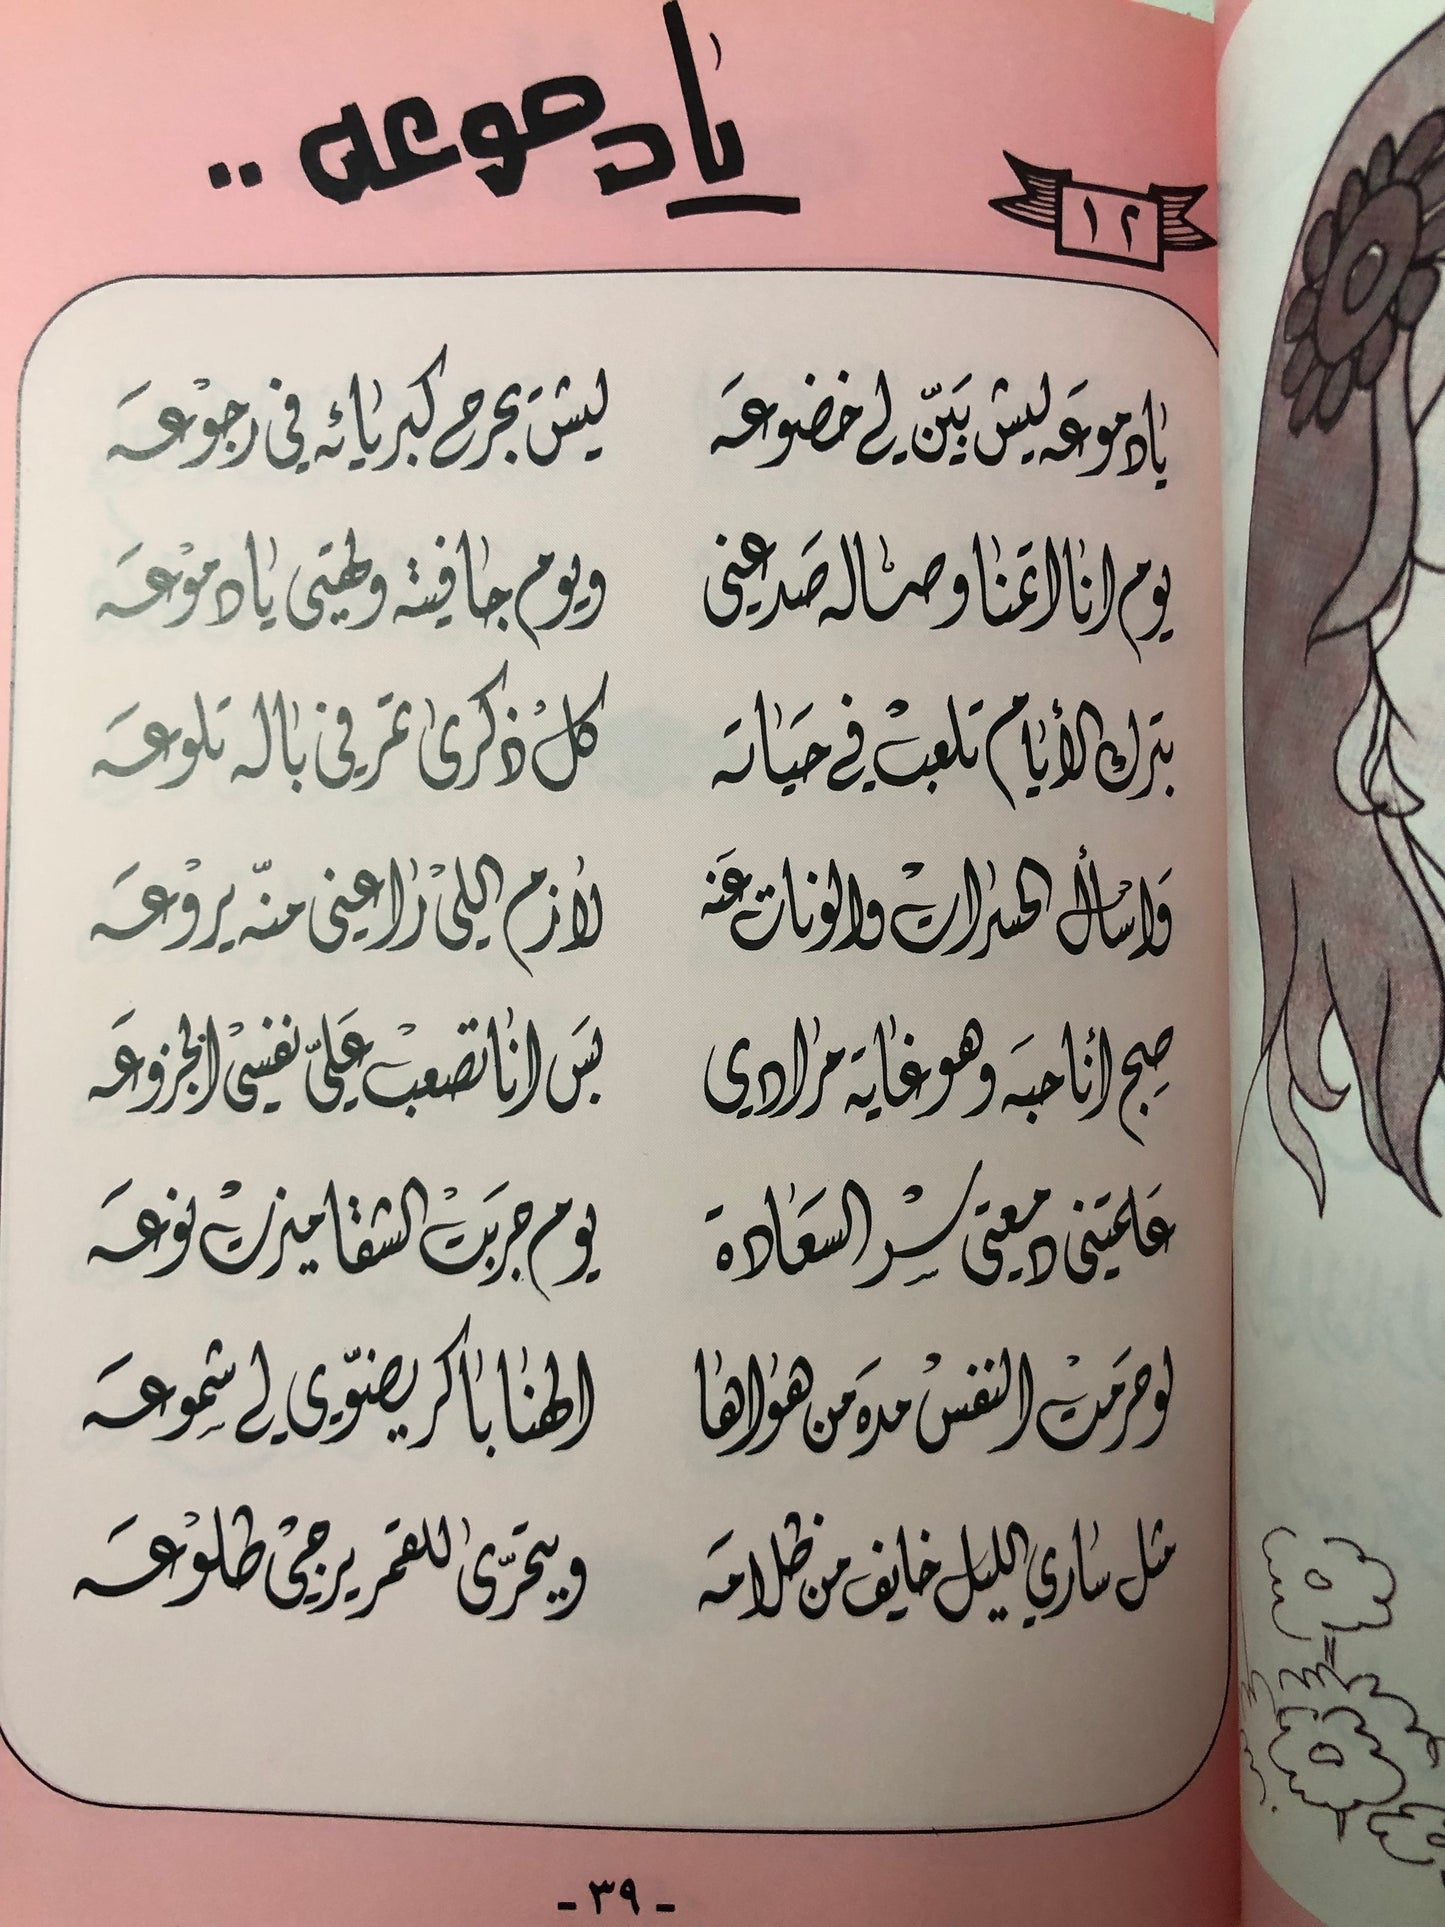 يا دموعه ..
١٢
يا دموعه ليش بَيّن لي خضوعه ليش بجرح كبريائه في رجوعه
يوم انا اتمنا وصاله صد عني ويوم جافيته ولهتي يا دموعه
بترك الأيام تلعب في حياته كل ذكرى تمر في باله تلوعه
واسأل الحسرات والونات عنه لازم اللي راعني منّه يروعه
صح أنا حبه وهو غاية مرادي بس انا تصعب عليّ نفسي الجزوعه
علمتني دمعتي سر السعادة يوم جربت الشقا ميزت نوعه
لو حرمت النفس مده من هواها الهنا باكر يضوّي لي شموعه
مثل ساري الليل خايف من ظلامه ويتحرّى للقمر يرجي طلوعه
- ٣٩ -